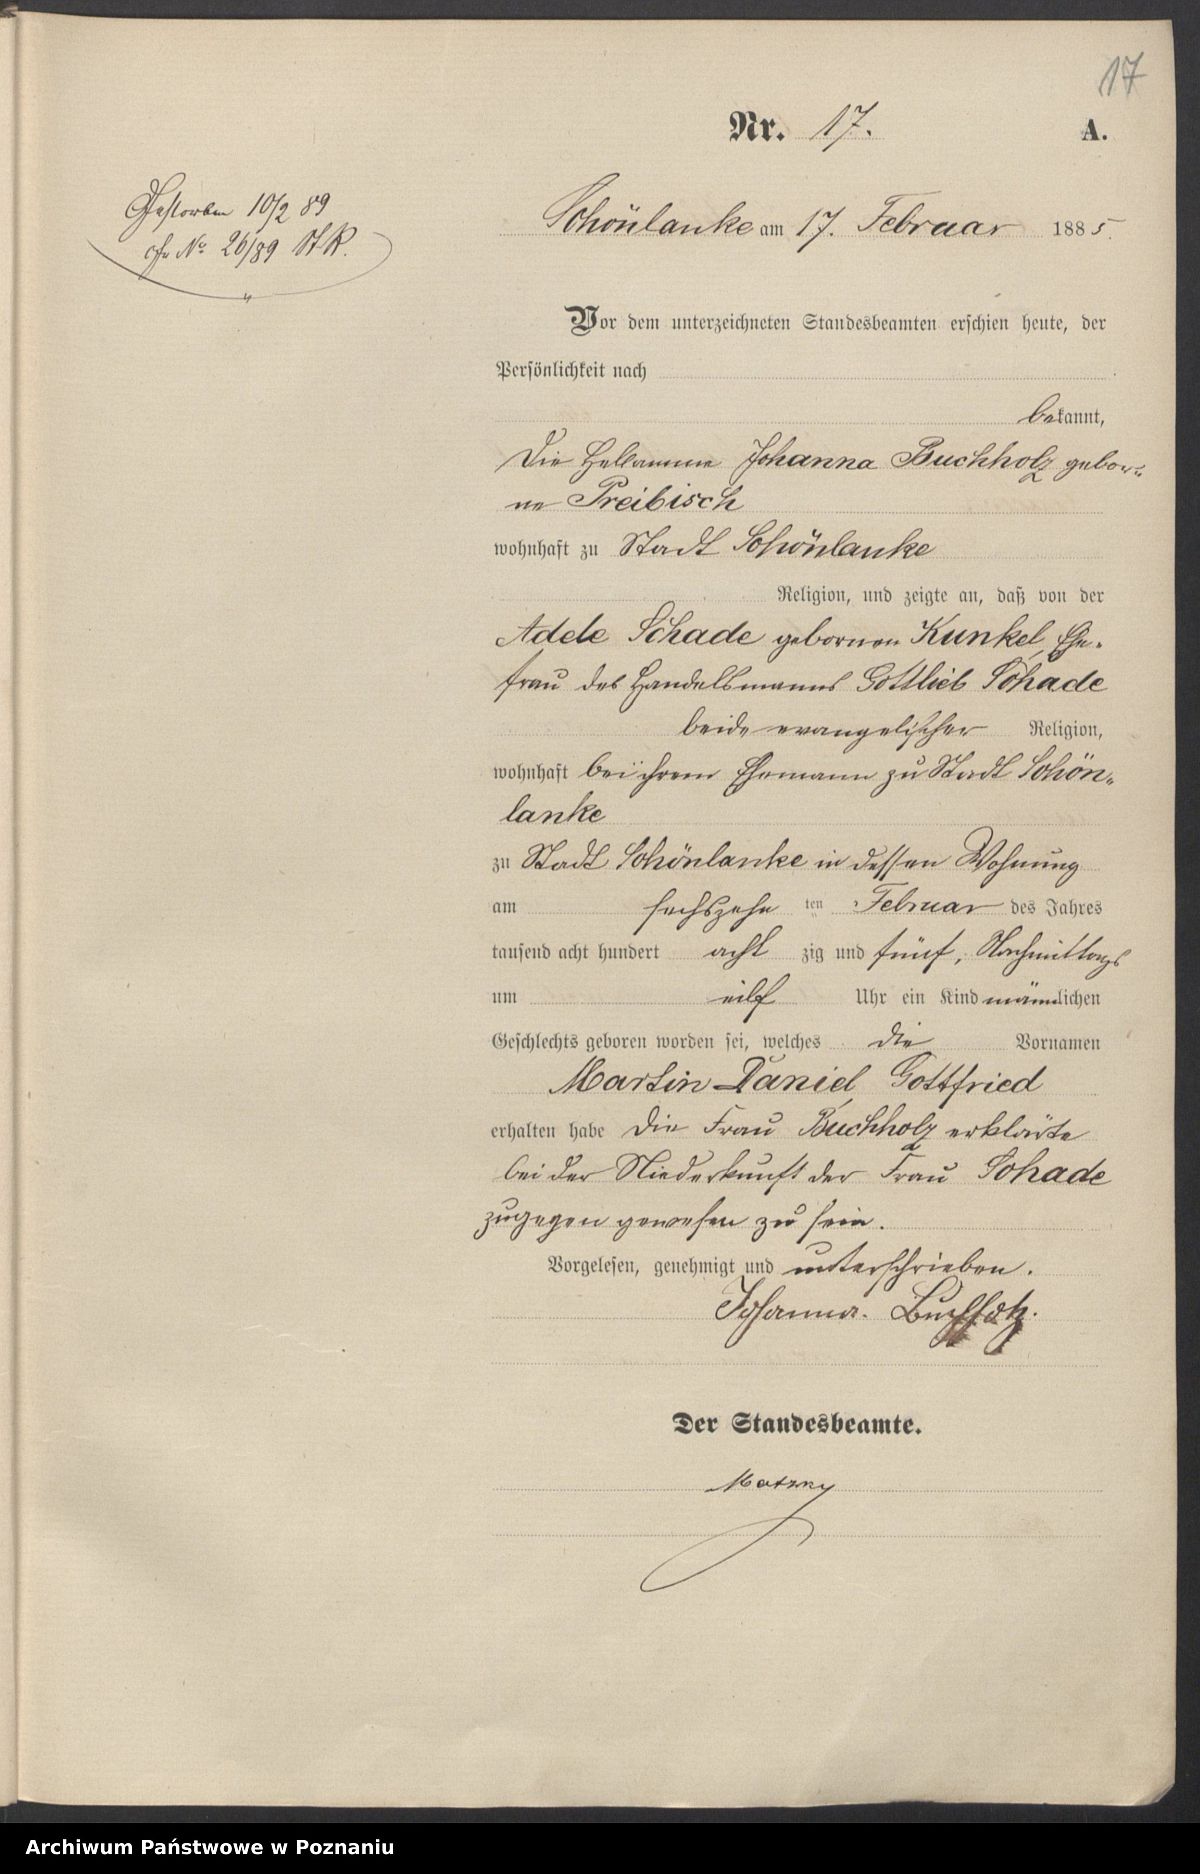 17
Nr. 17. A.
Gestorben 10/2 89
cfr No 26/89 St R.
Schönlanke am 17. Februar 1885.
Vor dem unterzeichneten Standesbeamten erschien heute, der
Persönlichkeit nach
bekannt,
die Hebamme Johanna Buchholz gebor-
ne Preibisch
wohnhaft zu Stadt Schönlanke
Religion, und zeigte an, daß von der
Adele Schade gebornen Kunkel, Ehe-
frau des Handelsmanns Gottlieb Schade
beide evangelischer Religion,
wohnhaft bei ihrem Ehemann zu Stadt Schön-
lanke
zu Stadt Schönlanke in dessen Wohnung
am sechszehn ten Februar des Jahres
tausend acht hundert acht zig und fünf, Nachmittags
um eilf Uhr ein Kind männlichen
Geschlechts geboren worden sei, welches die Vornamen
Martin Daniel Gottfried
erhalten habe die Frau Buchholz erklärte
bei der Niederkunft der Frau Schade
zugegen gewesen zu sein.
Vorgelesen, genehmigt und unterschrieben.
Johanna Buchholz.
Der Standesbeamte.
Archiwum Państwowe w Poznaniu